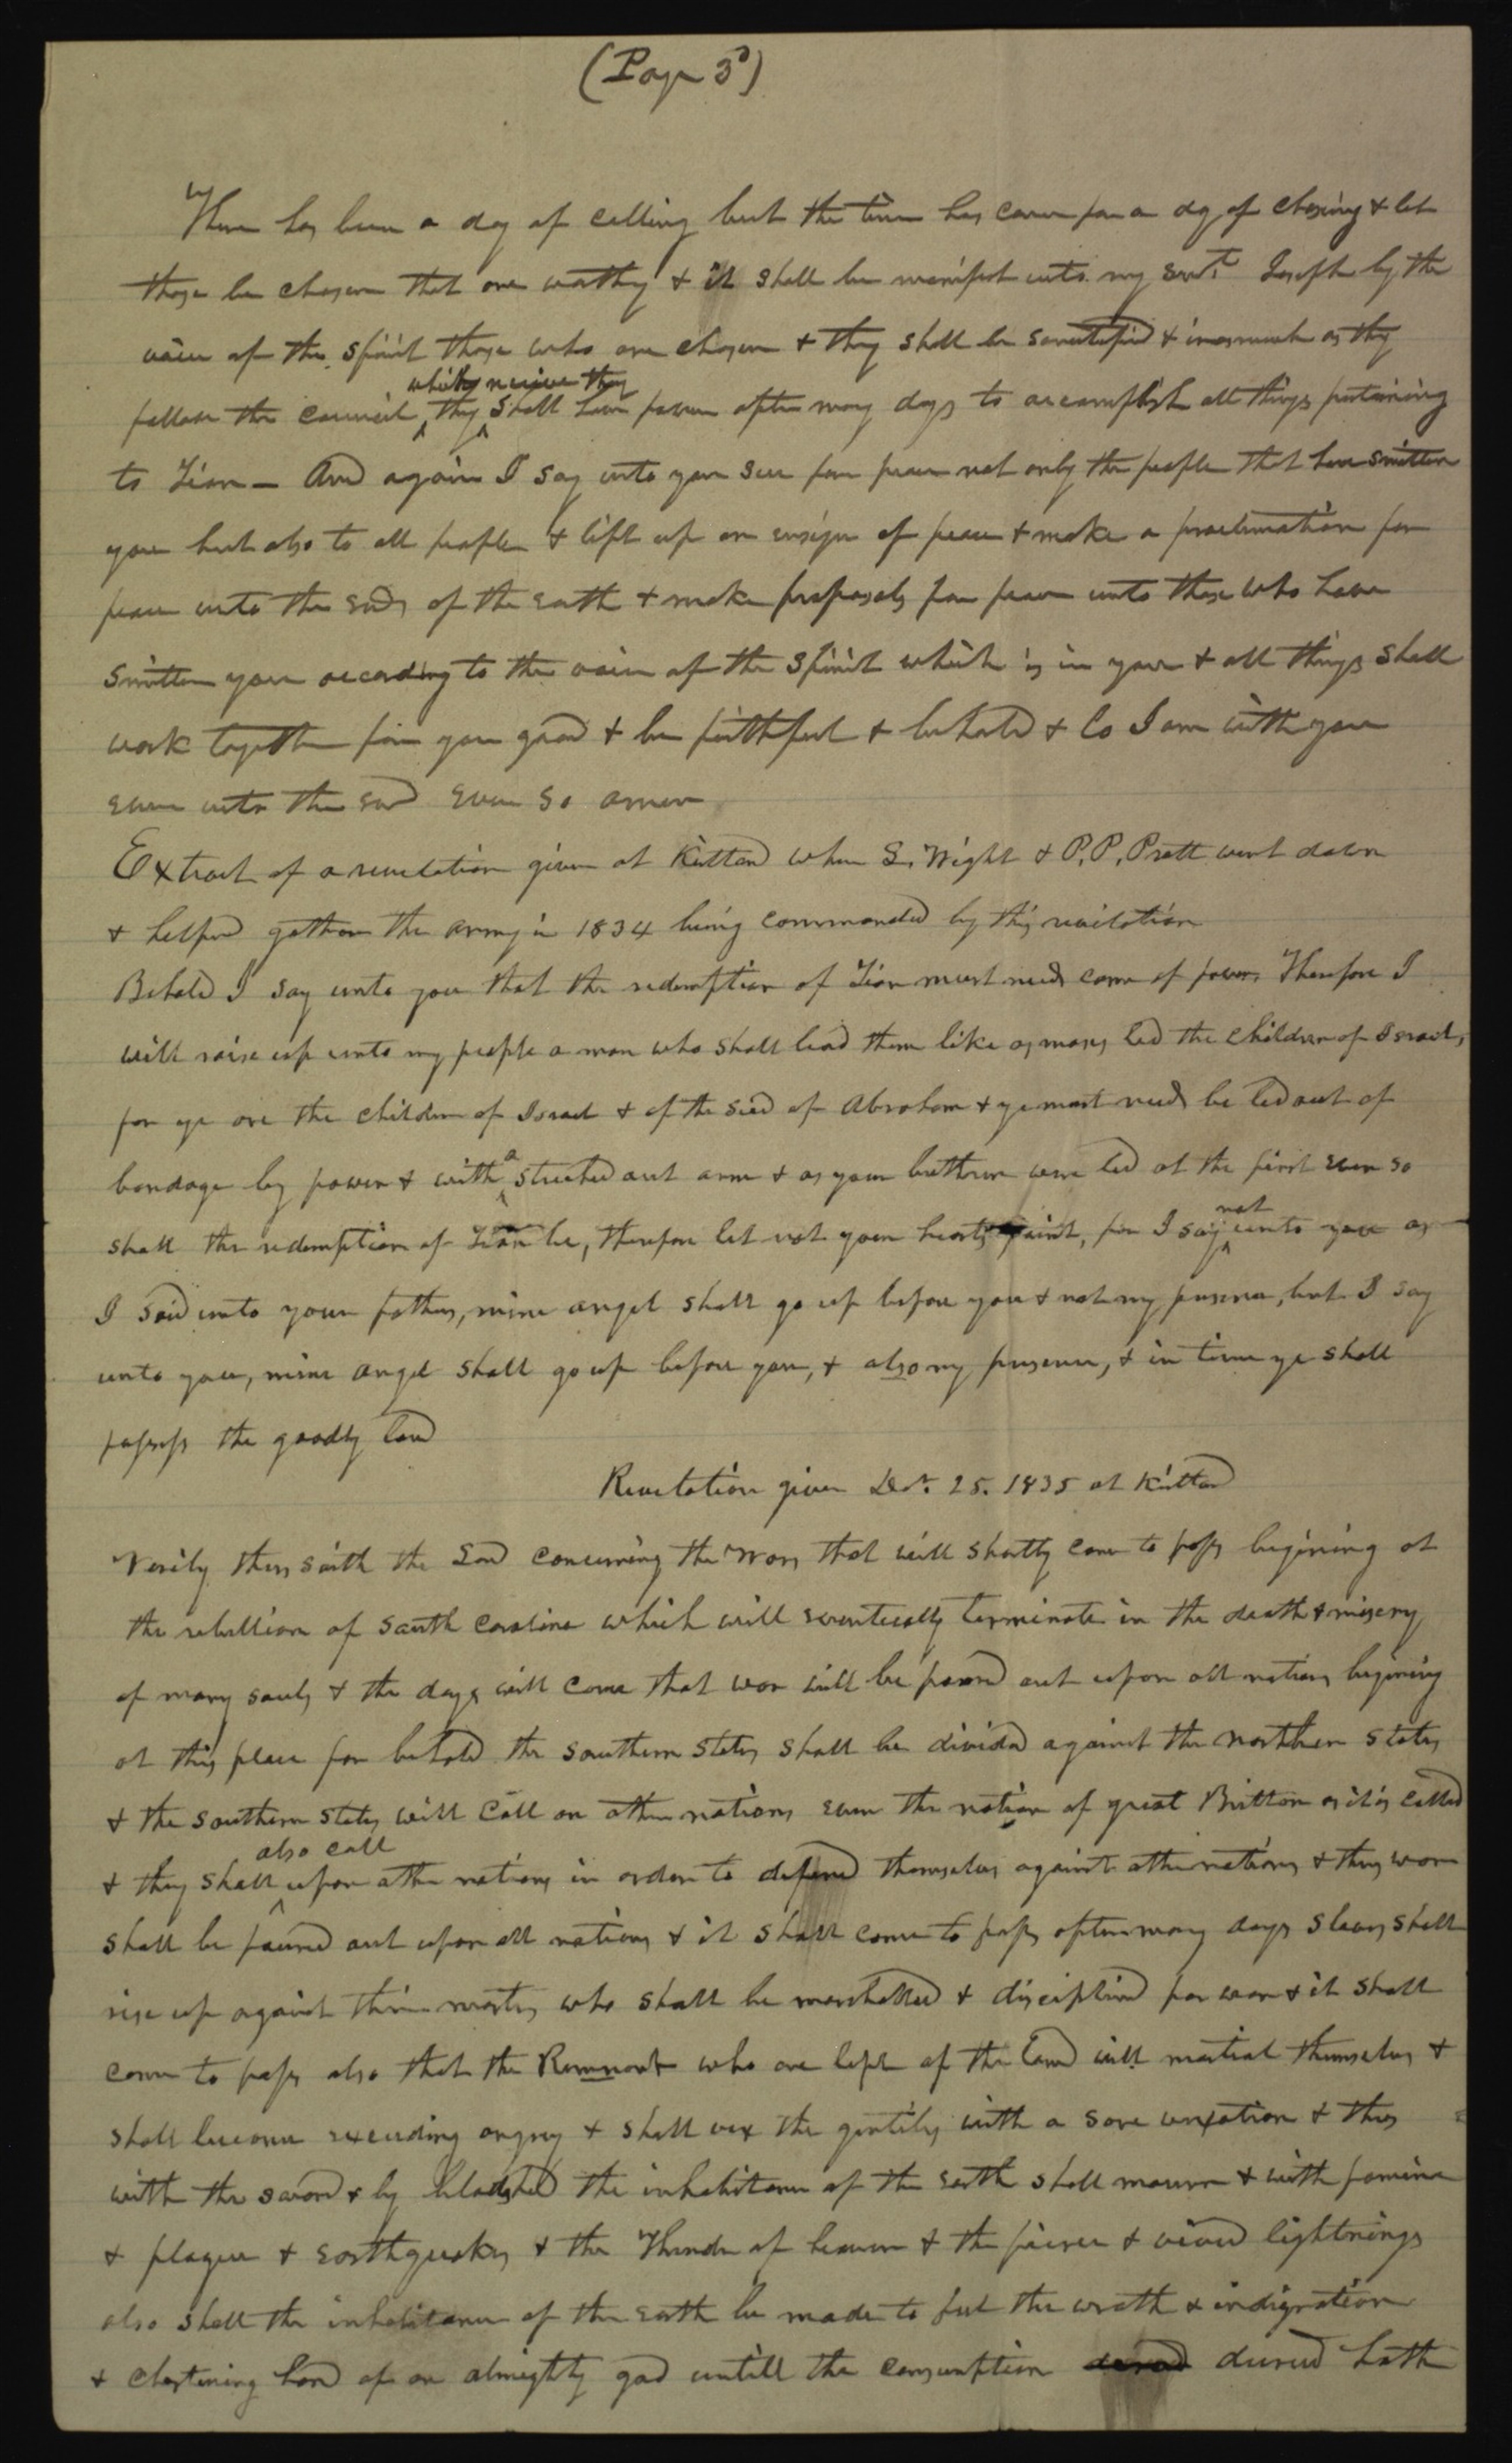 (Page 3)
There has been a day of calling but the time has come for a day of chosing & let
those be chosen that are worthy & it shall be manifest unto my servt Joseph by the
voice of the spirit those who are chosen & they shall be sanctified & inasmuch as they
which receive they
follow the council they shall have power after many days to accomplish all things pertaining
to Zion – And again I say unto you sue for peace not only the people that have smitten
you but also to all people & lift up an ensign of peace & make a proclimation for
peace unto the ends of the earth & make proposals for peace unto those who have
smitten you according to the voice of the spirit which is in you & all things shall
work together for your good & be faithful & behold & lo I am with you
even unto the end even so amen
Extract of a revelation given at Kirtland when L. Wight & P. P. Pratt went down
& helped gather the army in 1834 being commanded by this revilation
Behold I say unto you that the redemption of Zion must needs come of power. Therefore I
will raise up unto my people a man who shall lead them like as moses led the children of Israel,
for ye are the children of Israel & of the seed of Abraham & ye must needs be led out of
bondage by power & with a streched out arm & as your brethren were led at the first even so
not
shall the redemption of Zion be, therefore let not your hearts faint, for I say unto you as
I said unto your fathers, mine angel shall go up before you & not my presence, but I say
unto you, mine angel shall go up before you, & also my presence, & in time ye shall
possess the goodly land
Revelation given Dec. 25. 1835 at Kirtland
Verily thus saith the Lord concerning the wars that will shortly come to pass begining at
the rebellion of South Carolina which will eventually terminate in the death & misery
of many souls & the days will come that war will be poured out upon all nations begining
at this place for behold the southern states shall be divided against the northern states
& the southern states will call on other nations even the nation of great Brittan as it is called
also call
& they shall upon other nations in order to defend themselves against other nations & thus war
shall be poured out upon all nations & it shall come to pass after many days slaves shall
rise up against their masters who shall be marshalled & disciplined for war & it shall
come to pass also that the Remnant who are left of the land will martial themselves &
shall become exceeding angry & shall vex the gentiles with a sore vexation & thus
with the sword & by bloodshed the inhabitance of the earth shall mourn & with famine
& plague & earthquakes & the Thunder of heaven & the fierce & vived lightnings
also shall the inhabitance of the earth be made to feel the wrath & indignation
& chastening hand of an almighty god untill the consumption decreed hath